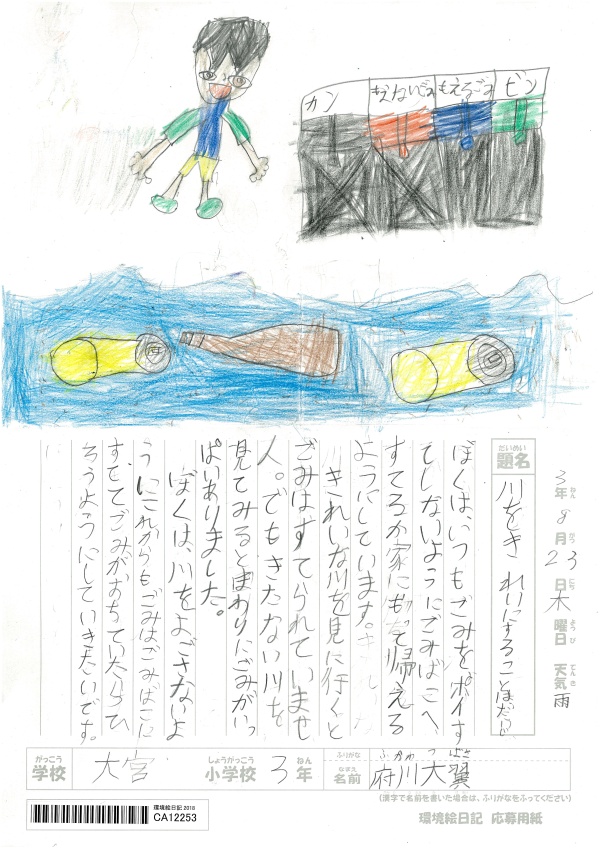 カン
もえないごみ
もえるごみ
ビン
3年ねん 8月がつ 23日にち 木曜日ようび 天気てんき 雨
題名だいめい
川をきれいにすることはだいじ
ぼくは、いつもごみをポイす
てしないようにごみばこへ
すてるか家に持って帰える
ようにしています。
きれいな川を見に行くと
ごみはすてられていませ
人。でもきたない川を
見てみるとまわりにごみがいっ
ぱいありました。
ぼくは、川をよごさないよ
うにこれからもごみはごみばこに
すててごみがおちていたらひ
ろうようにしていきたいです。
がっこう 学校 大宮 しょうがっこう 小学校 3 ねん 年
ふりがな ふかわ つばさ
なまえ 名前 府川大翼
(漢字で名前を書いた場合は、ふりがなをふってください)
環境絵日記 2018
CA12253
環境絵日記 応募用紙